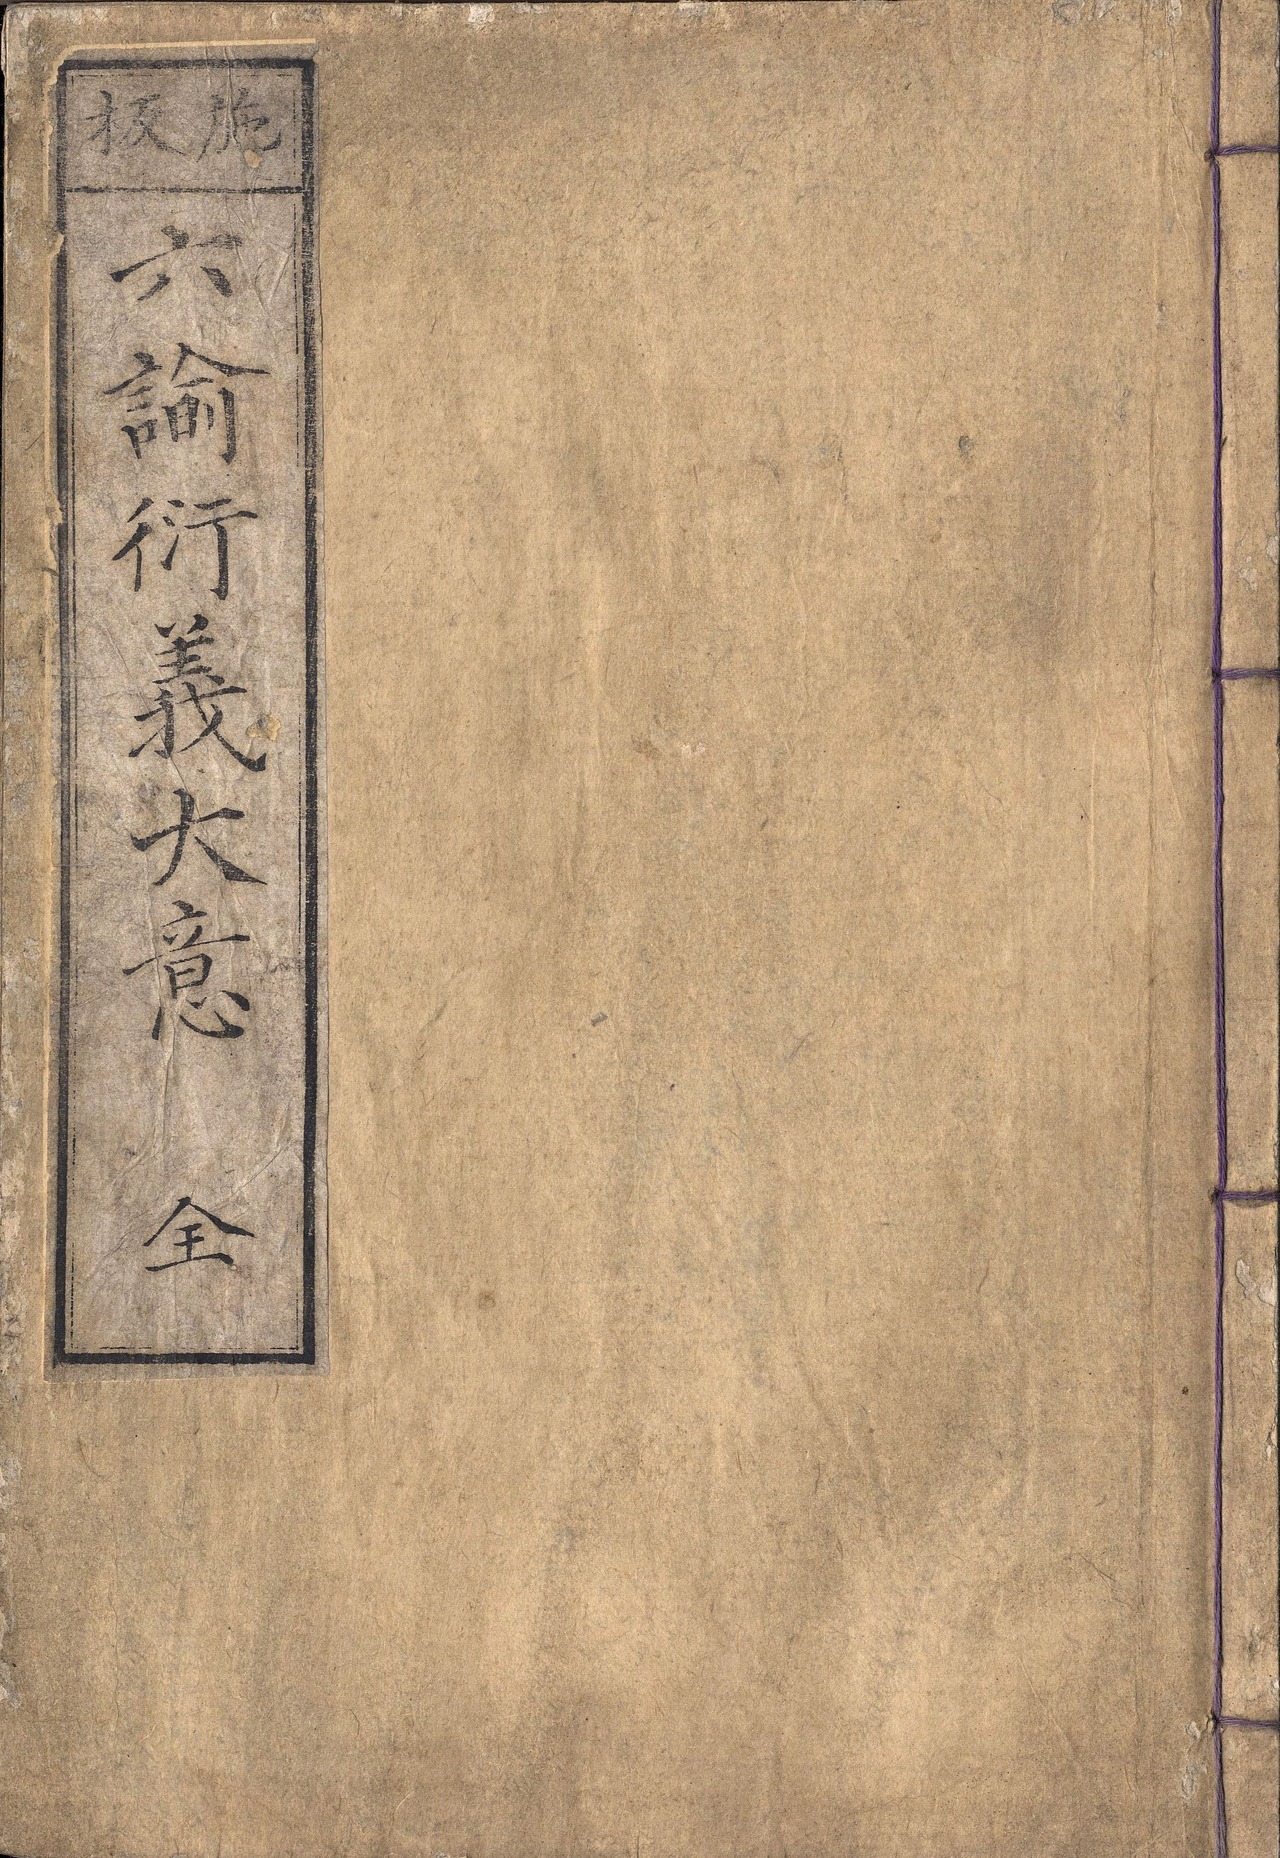 施板
六諭衍義大意
全